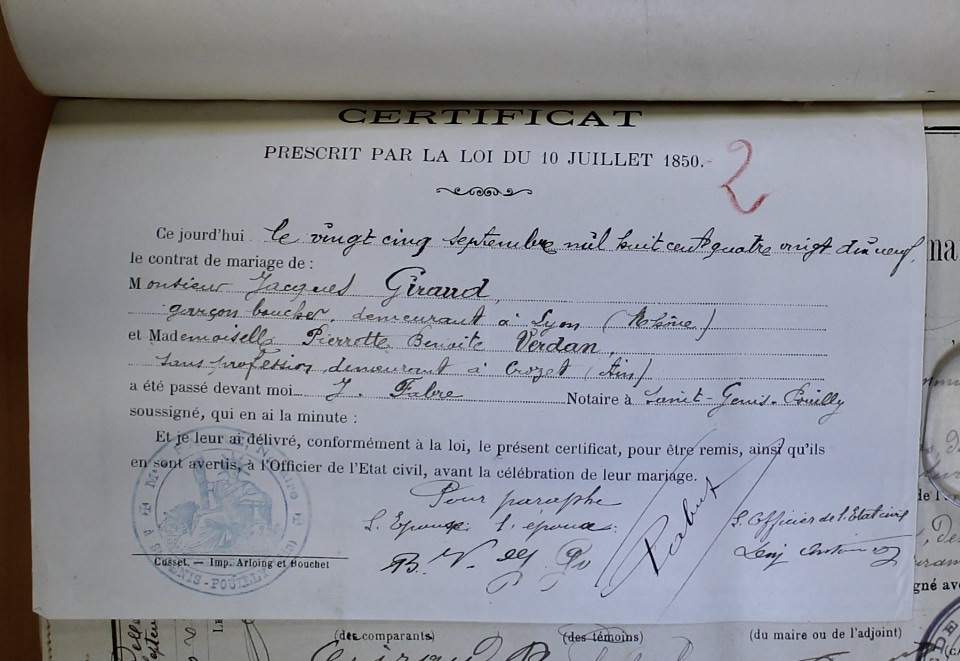 CERTIFICAT
PRESCRIT PAR LA LOI DU 10 JUILLET 1850.
2
Ce jourd'hui le vingt cinq septembre mil huit cent quatre vingt dix neuf,
le contrat de mariage de :
Monsieur Jacques Giraud,
garçon boucher, demeurant à Lyon (Rhône)
et Mademoiselle Pierrotte Benoite Verdan,
sans profession, demeurant à Crozet (Ain)
a été passé devant moi J. Fabre Notaire à Saint-Genis-Pouilly
soussigné, qui en ai la minute :
Et je leur ai délivré, conformément à la loi, le présent certificat, pour être remis, ainsi qu'ils
en sont avertis, à l'Officier de l'Etat civil, avant la célébration de leur mariage.
Pour paraphe
L'Officier de l'Etat civil
B. V.
Cusset. — Imp. Arloing et Bouchet
(des comparants) (des témoins) (du maire ou de l'adjoint)